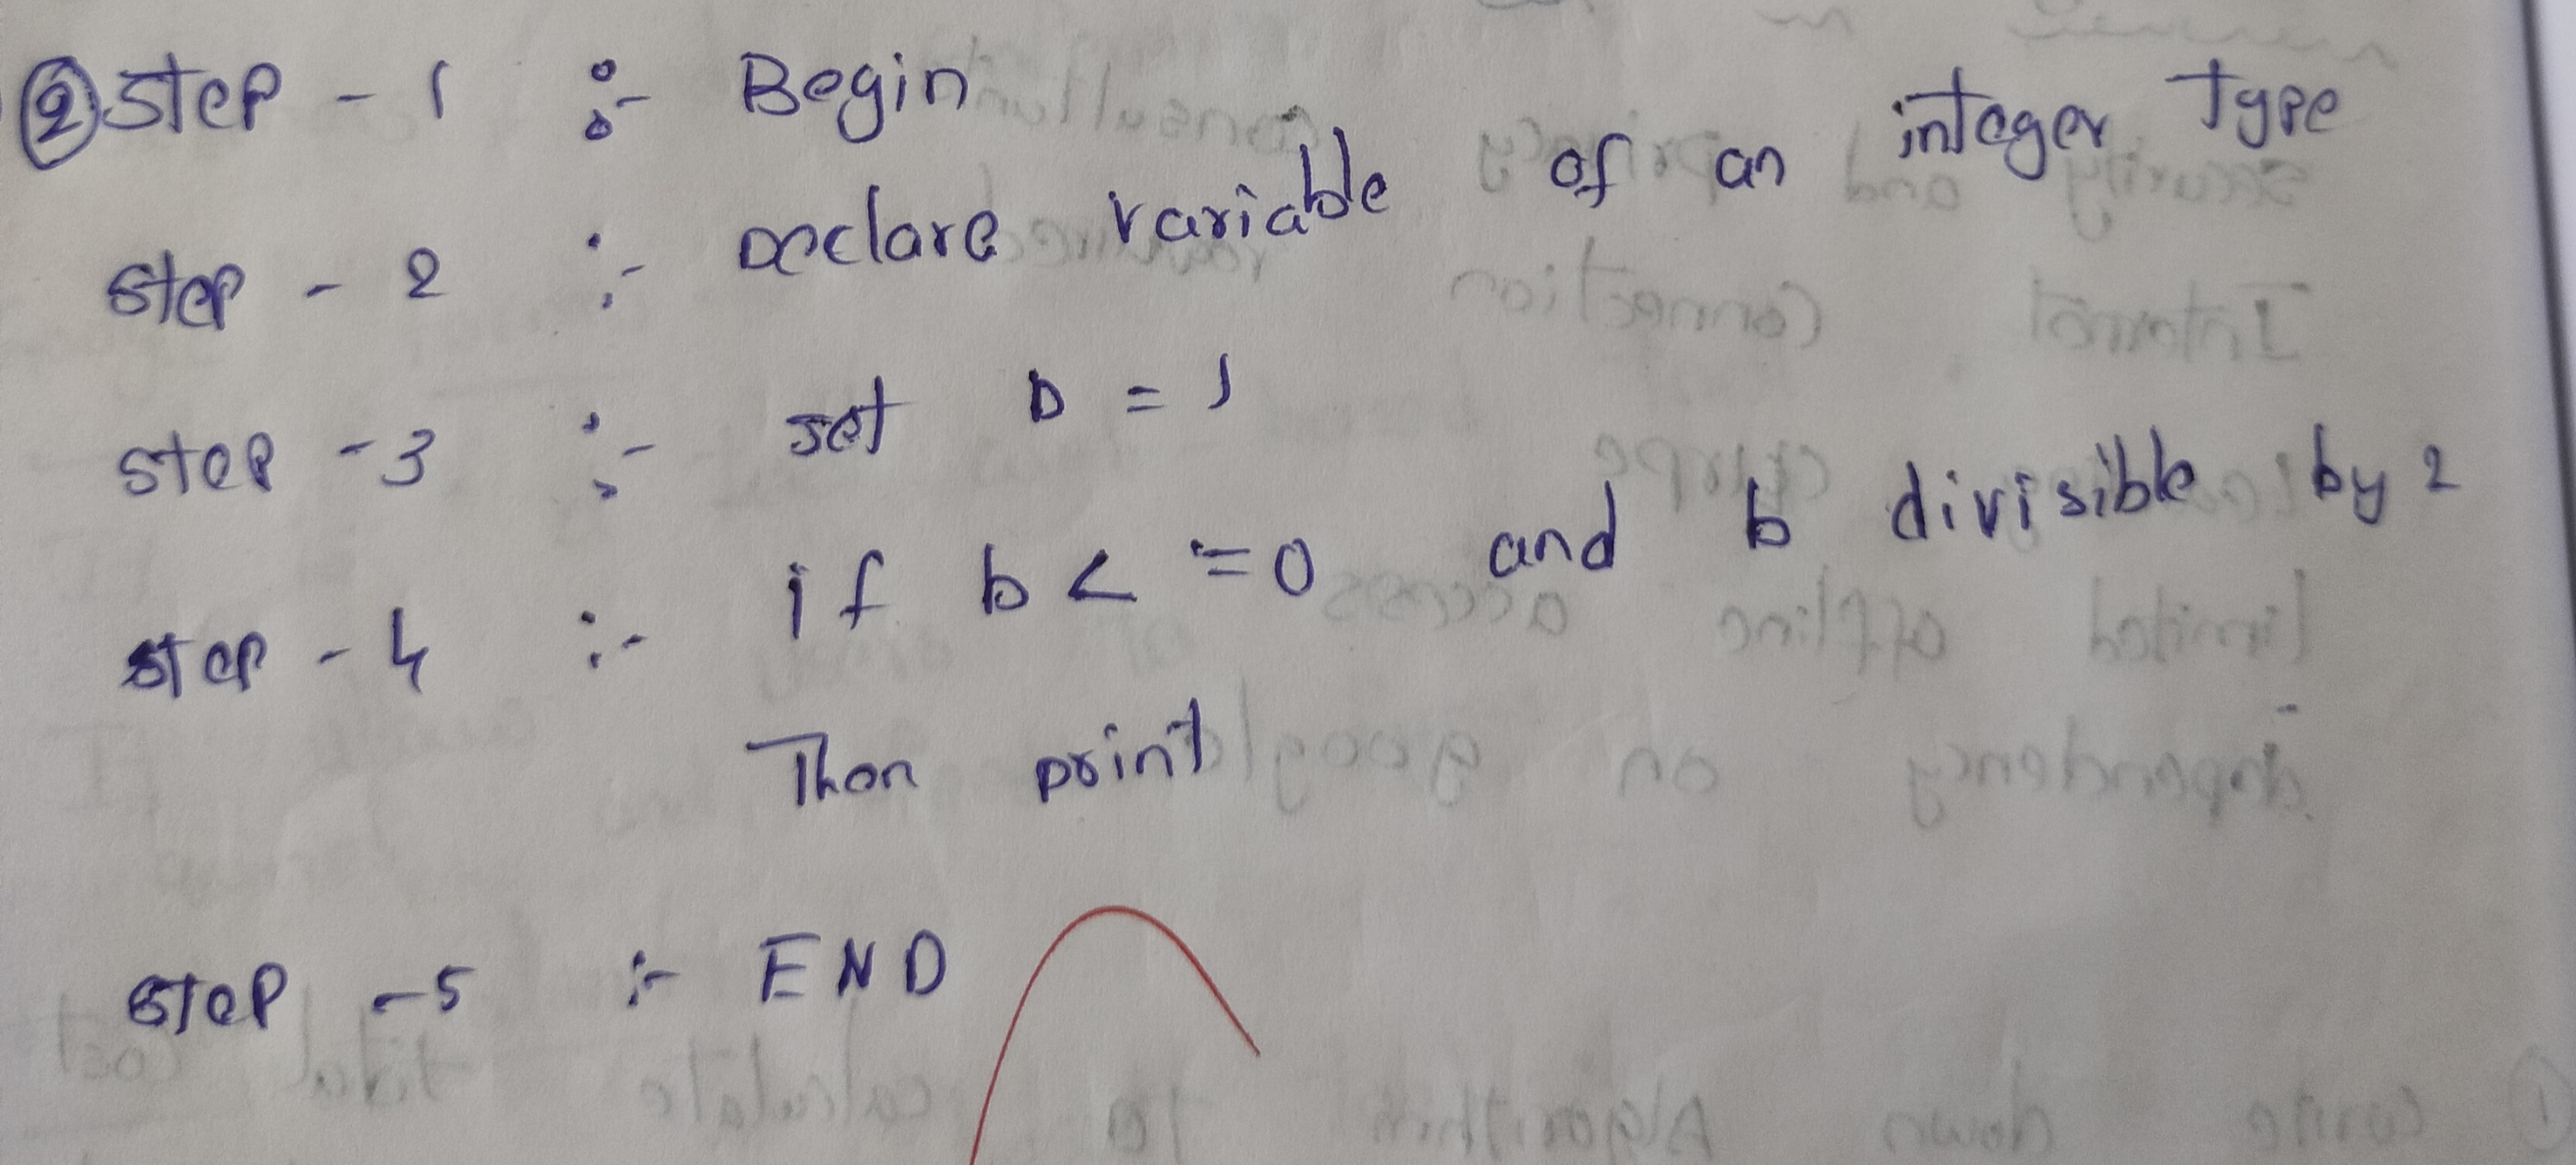 ② Step - 1 :- Begin
Step - 2 :- Declare variable of an integer Type
Step - 3 :- set b = 1
Step - 4 :- if b < = 0 and b divisible by 2
Then print
Step - 5 :- END